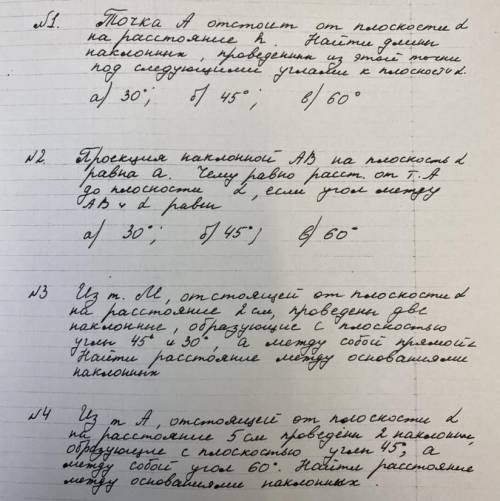 №1. Точка А отстоит от плоскости α
на расстояние h. Найти длины
наклонных, проведенных из этой точки
под следующими углами к плоскости α.
а) 30°; б) 45°; в) 60°
№2. Проекция наклонной АВ на плоскость α
равна а. Чему равно расст. от т. А
до плоскости α, если угол между
АВ и α равен
а) 30°; б) 45°; в) 60°
№3 Из т. М, отстоящей от плоскости α
на расстояние 2 см, проведены две
наклонные, образующие с плоскостью
углы 45° и 30°, а между собой прямой.
Найти расстояние между основаниями
наклонных
№4 Из т А, отстоящей от плоскости α
на расстояние 5 см проведены 2 наклонные,
образующие с плоскостью углы 45°, а
между собой угол 60°. Найти расстояние
между основаниями наклонных.